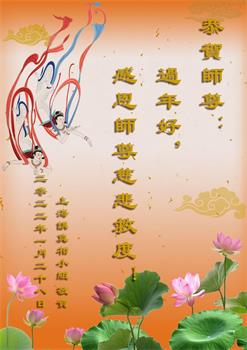 恭賀師尊：
過年好，
感恩師尊慈悲救度！
上海講真相小組敬賀
二零二二年一月二十八日